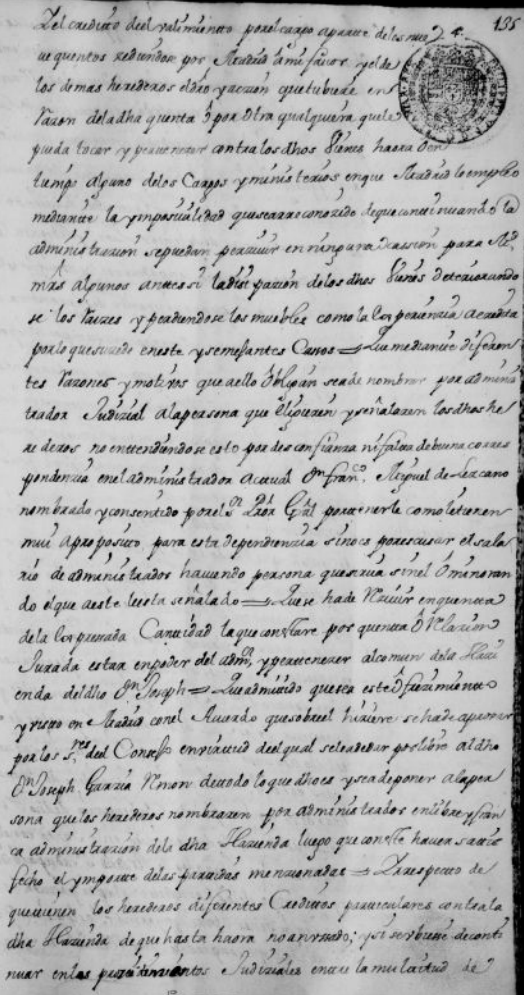 135
Del credito deel valimientto por el cargo aparte de los nue 4.
ue quentos redundose por Madrid a mi favor y el de
los demas herederos el dro y accion que tubiere en
Razon de la dha quenta ô por otra qualquiera que le
pueda tocar y pertenecer contra los dhos Vienes haora o en
tiempo alguno de los Cargos y ministerios en que Madrid lo empleo
mediante la ymposivilidad que se a rreconozido de que continuando la
administrazion se puedan perzivir en ninguna ocassion para
mrs algunos antes si la disipazion de los dhos Vienes deteriorando
se los Raizes y perdiendose los muebles como la Experienzia acredita
por lo que suzede en este y semejantes Casos = Que mediante diferen
tes Razones y motivos que a ello obligan se a de nombrar por adminis
trador Judizial a la persona que elijieren y señalaren los dhos he
rederos no enttendiendose esto por desconfianza ni falta de buena corres
pondenzia en el administrador actual Dn Franco Miguel de Lezcano
nombrado y consentido por el Sr Pror Gral por tenerle como le tienen
mui a proposito para esta dependienzia sino es por escusar el sala
rio de administrador haviendo persona que sirva sin el ô minoran
do el que a este le esta señalado = Que se ha de Rezivir en quentta
de la Expressada Cantidad la que constare por quentta ô Relazion
Jurada estar en poder del admor y pertenecer al comun de la Hazi
enda del dho Dn Joseph = Que admitido que sea este ofrezimiento
y visto en Madrid con el Acuerdo que sobre el hiziere se ha de aprovar
por los Sres deel Consejo en virtud deel qual se le a de dar por libre al dho
Dn Joseph Garzia Remon de todo lo que dho es y se a de poner a la per
sona que los herederos nombraren por administrador en libre y fran
ca administrazion de la dha Hazienda luego que conste haver satis
fecho el ymporte de las partidas menzionadas = Y rrespecto de
que tienen los herederos diferentes Credittos particulares contra la
dha Hazienda de que hasta haora no an ussado; y si se ubiesse de conti
nuar en los Judiziales entre la multitud de